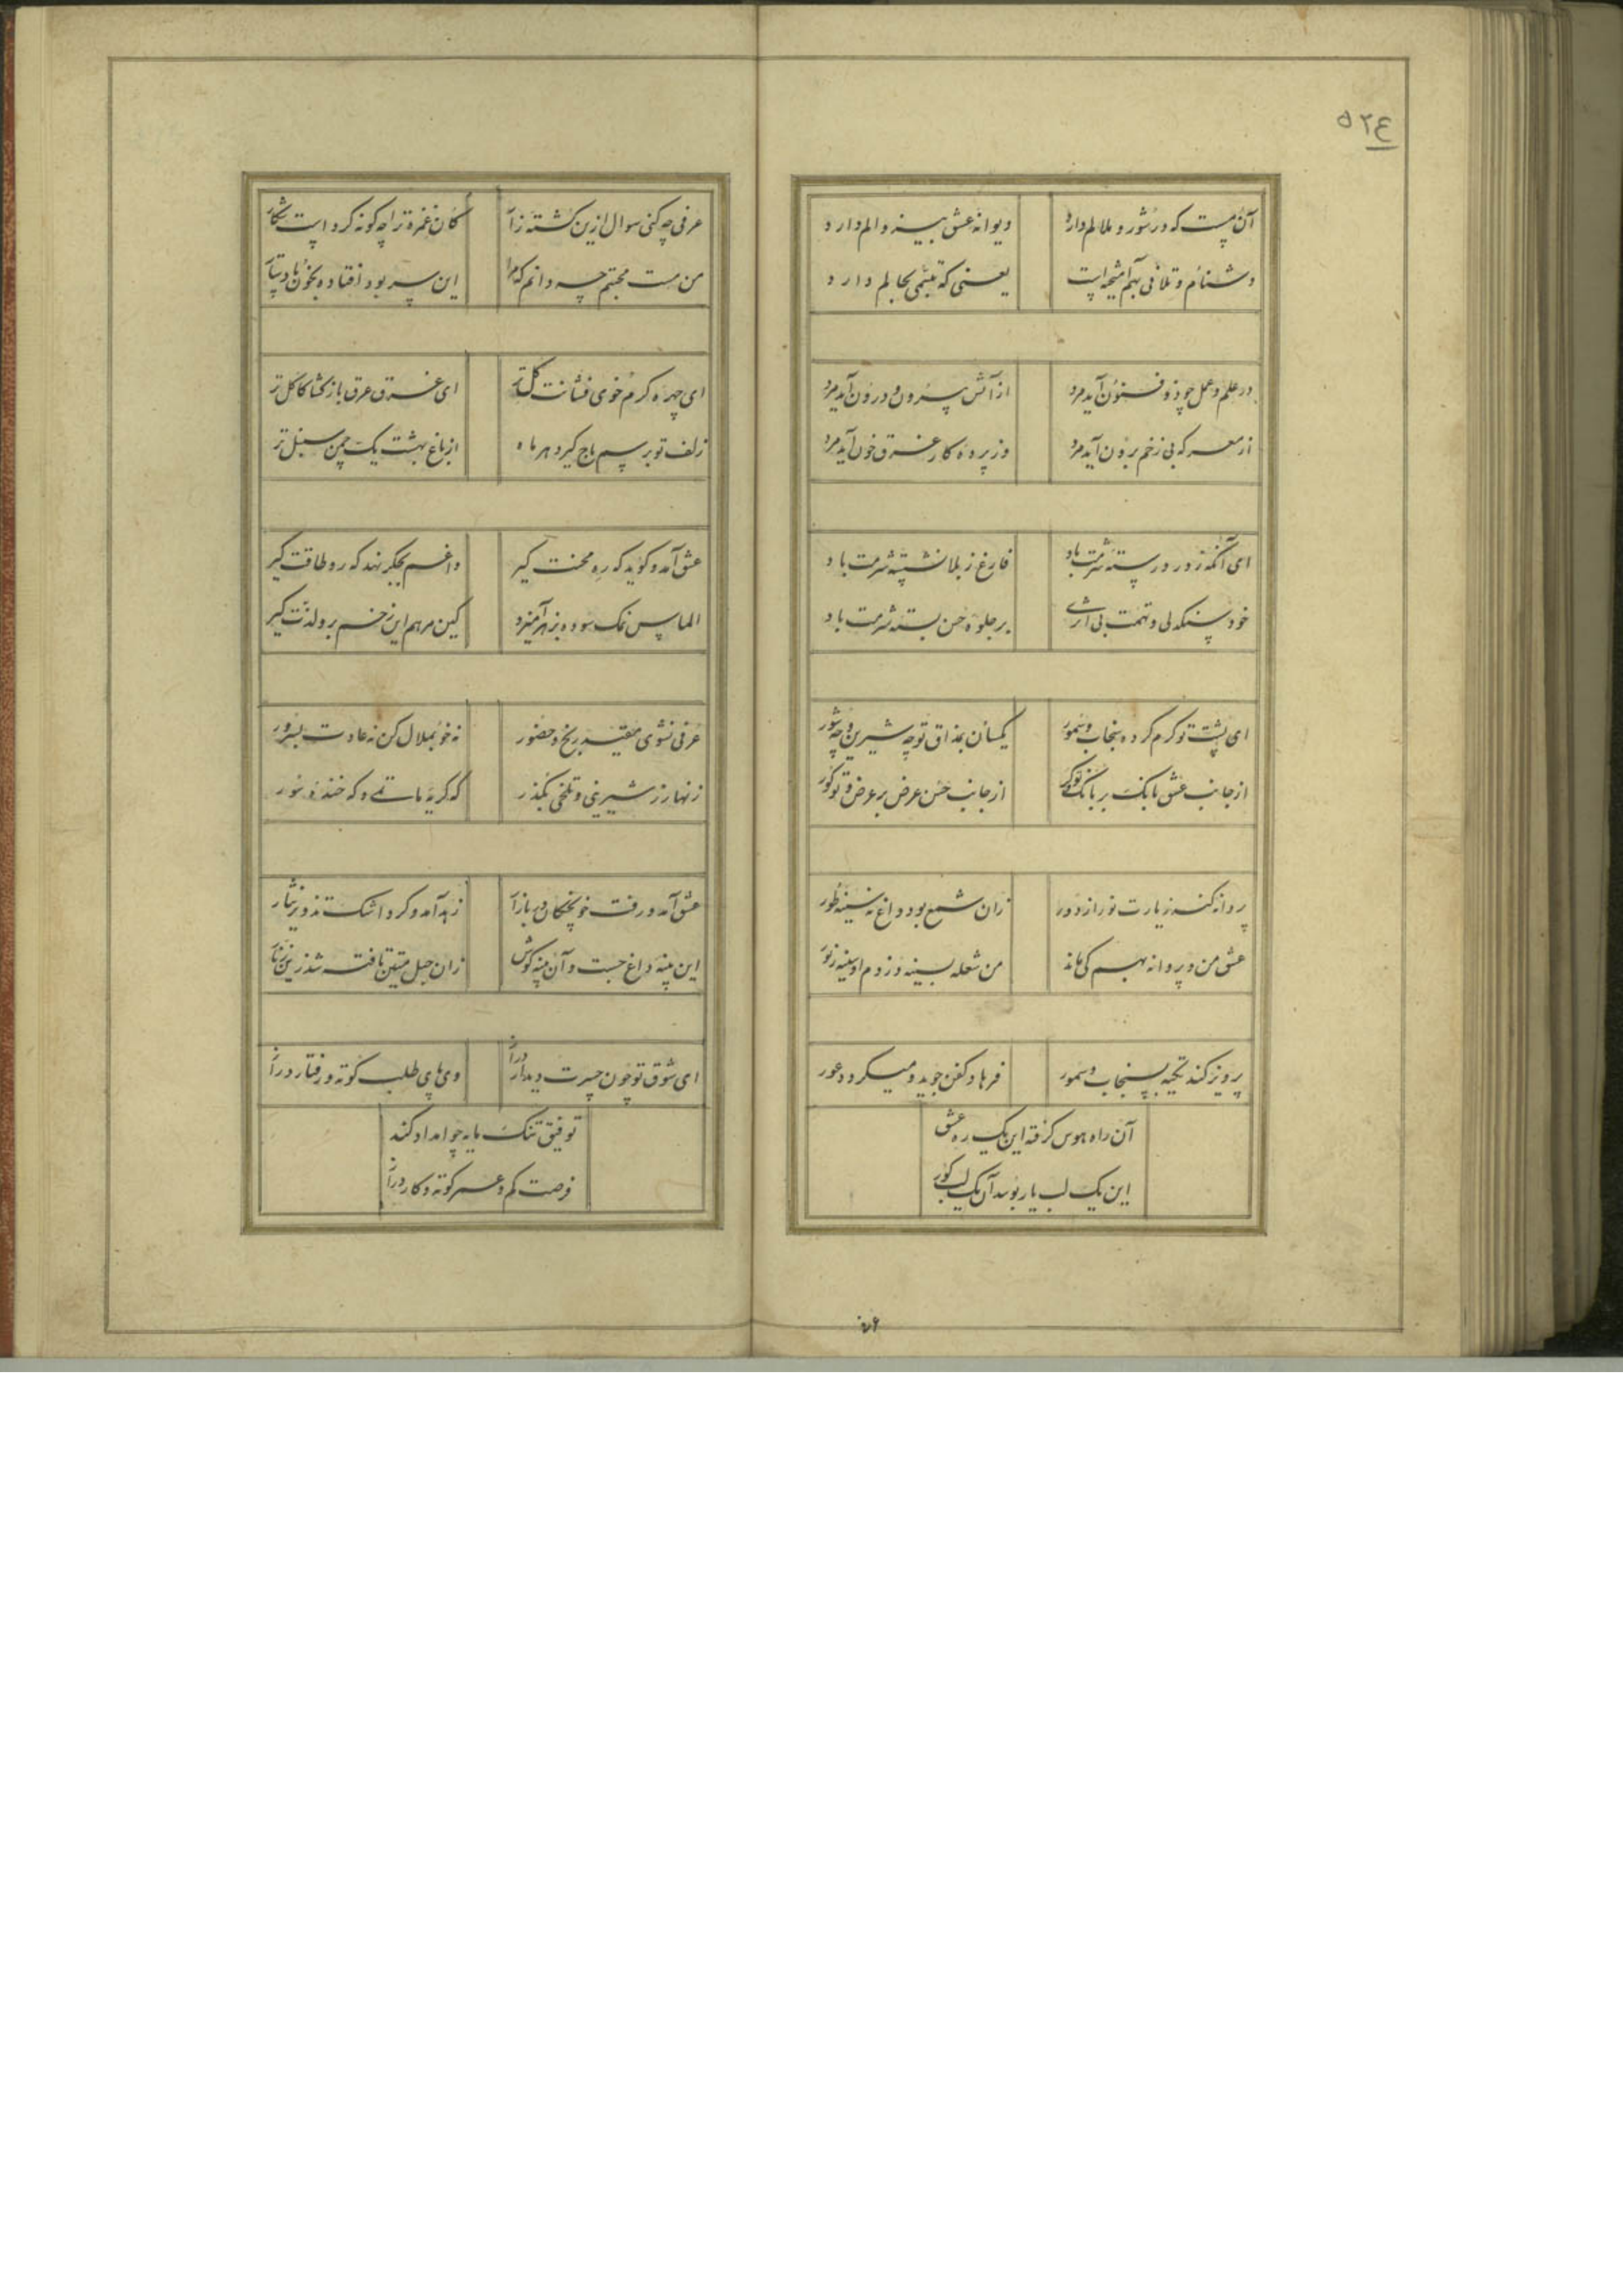 ۵۲۴
آن مست که در شور و ملالم دارد
دیوانه عشق بیند و الم دارد
دشنام و تلافی بهم آمیخته است
یعنی که تبسمی بحالم دارد
در علم و عمل چو ذوفنون آید مرد
از آتش بیرون و درون آید مرد
از معرکه بی زخم برون آید مرد
وز پرده کار غرق خون آید مرد
ای آنکه ز درد رسته شرمت باد
فارغ ز بلا نشسته شرمت باد
خود سنگدلی و تهمت بی اثری
بر جلوه حسن بسته شرمت باد
ای پشت تو گرم کرده سنجاب و سمور
یکسان بمذاق تو چه شیرین و چه شور
از جانب عشق بانگ بر بانگ و تو کر
از جانب حسن عرض بر عرض و تو کور
پروانه کند زیارت نور از دور
زان شمع بود داغ نه سینه طور
عشق من و پروانه بهم کی ماند
من شعله بسینه دزدم او سینه بنور
پرویز کند تکیه بسنجاب و سمور
فرهاد کفن جوید و میگردد عور
آن راه هوس گرفته این یک ره عشق
این یک لب یار بوسد آن یک لب گور
عرفی چه کنی سوال ازین کشته زار
کان غمزه ترا چگونه کرد است شکار
من مست محبتم چه دانم که مرا
این سر بود افتاده بخون یا دستار
ای چهره گرم خوی فشانت گل تر
ای غرق عرق باز گشا کاکل تر
زلف تو برسم باج گیرد هر ماه
از باغ بهشت یک چمن سنبل تر
عشق آمد و گوید که ره محنت گیر
داغم بجگر نهد که رو طاقت گیر
الماس نمک سوده بزهر آمیزد
کین مرهم این زخم بر و لذت گیر
عرفی نشوی مقید رنج و حضور
نه خو بملال کن نه عادت بسرور
زنهار ز شیرینی و تلخی بگذر
که گریه ماتم و که خنده سور
عشق آمد و رفت خونچکان در بازار
زهد آمد و کرد اشک تذویر نثار
این پنبه داغ جست و آن پنبه گوش
زان حبل متین تافته شد زین زنار
ای شوق تو چون حسرت دیدار دراز
وی پای طلب کوته و رفتار دراز
توفیق تنک مایه چو امداد کند
فرصت کم و عمر کوته و کار دراز